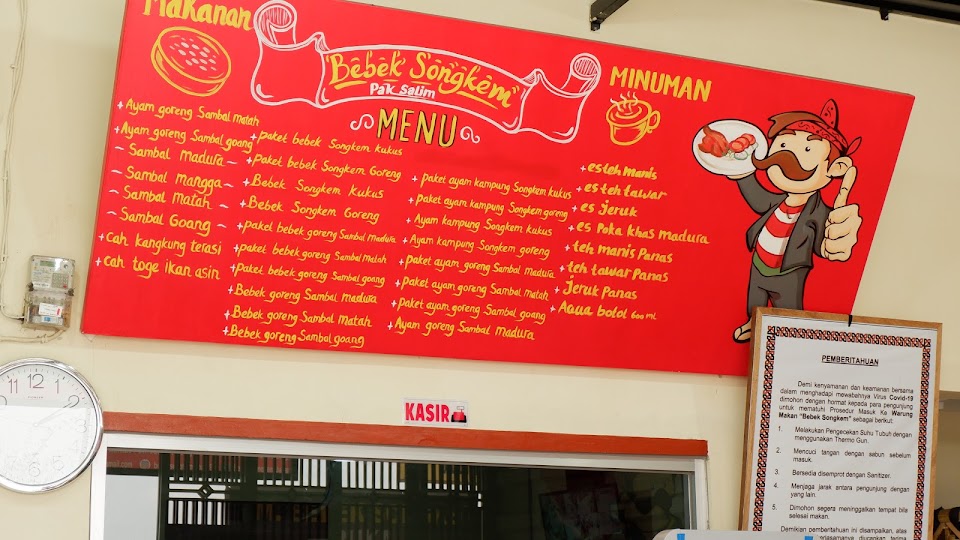 Makanan
Bebek Songkem
Pak Salim
MENU
MINUMAN
+ Ayam goreng Sambal matah
+ Ayam goreng Sambal goang
~ Sambal madura ~
~ Sambal mangga ~
~ Sambal matah ~
~ Sambal Goang ~
+ cah kangkung terasi
+ cah toge ikan asin
+ paket bebek Songkem kukus
+ paket bebek Songkem Goreng
+ Bebek Songkem Kukus
+ Bebek Songkem Goreng
+ paket bebek goreng Sambal madura
+ paket bebek goreng Sambal matah
+ paket bebek goreng Sambal goang
+ Bebek goreng Sambal madura
+ Bebek goreng Sambal matah
+ Bebek goreng Sambal goang
+ paket ayam kampung Songkem kukus
+ paket ayam kampung Songkem goreng
+ Ayam kampung Songkem kukus
+ Ayam kampung Songkem goreng
+ paket ayam goreng Sambal madura
+ paket ayam goreng Sambal matah
+ paket ayam goreng Sambal goang
+ Ayam goreng Sambal madura
+ es teh manis
+ es teh tawar
+ es jeruk
+ es Poka khas madura
+ teh manis Panas
+ teh tawar Panas
+ Jeruk Panas
+ Aqua botol 600 mL
KASIR
PEMBERITAHUAN
Demi kenyamanan dan keamanan bersama
dalam menghadapi mewabahnya Virus Covid-19
dimohon dengan hormat kepada para pengunjung
untuk mematuhi Prosedur Masuk Ke Warung
Makan "Bebek Songkem" sebagai berikut:
1. Melakukan Pengecekan Suhu Tubuh dengan
menggunakan Thermo Gun.
2. Mencuci tangan dengan sabun sebelum
masuk.
3. Bersedia disemprot dengan Sanitizer.
4. Menjaga jarak antara pengunjung dengan
yang lain.
5. Dimohon segera meninggalkan tempat bila
selesai makan.
Demikian pemberitahuan ini disampaikan, atas